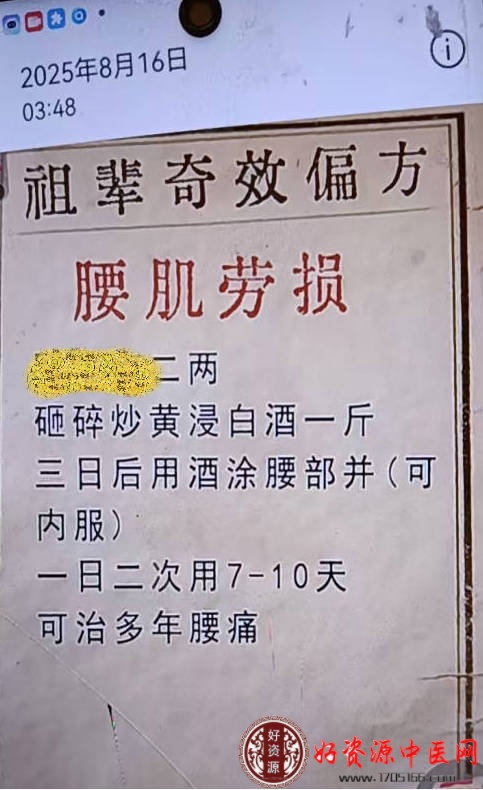 2025年8月16日
03:48
祖辈奇效偏方
腰肌劳损
二两
砸碎炒黄浸白酒一斤
三日后用酒涂腰部并(可
内服)
一日二次用7-10天
可治多年腰痛
好资源
好资源中医网
www.1705166.com